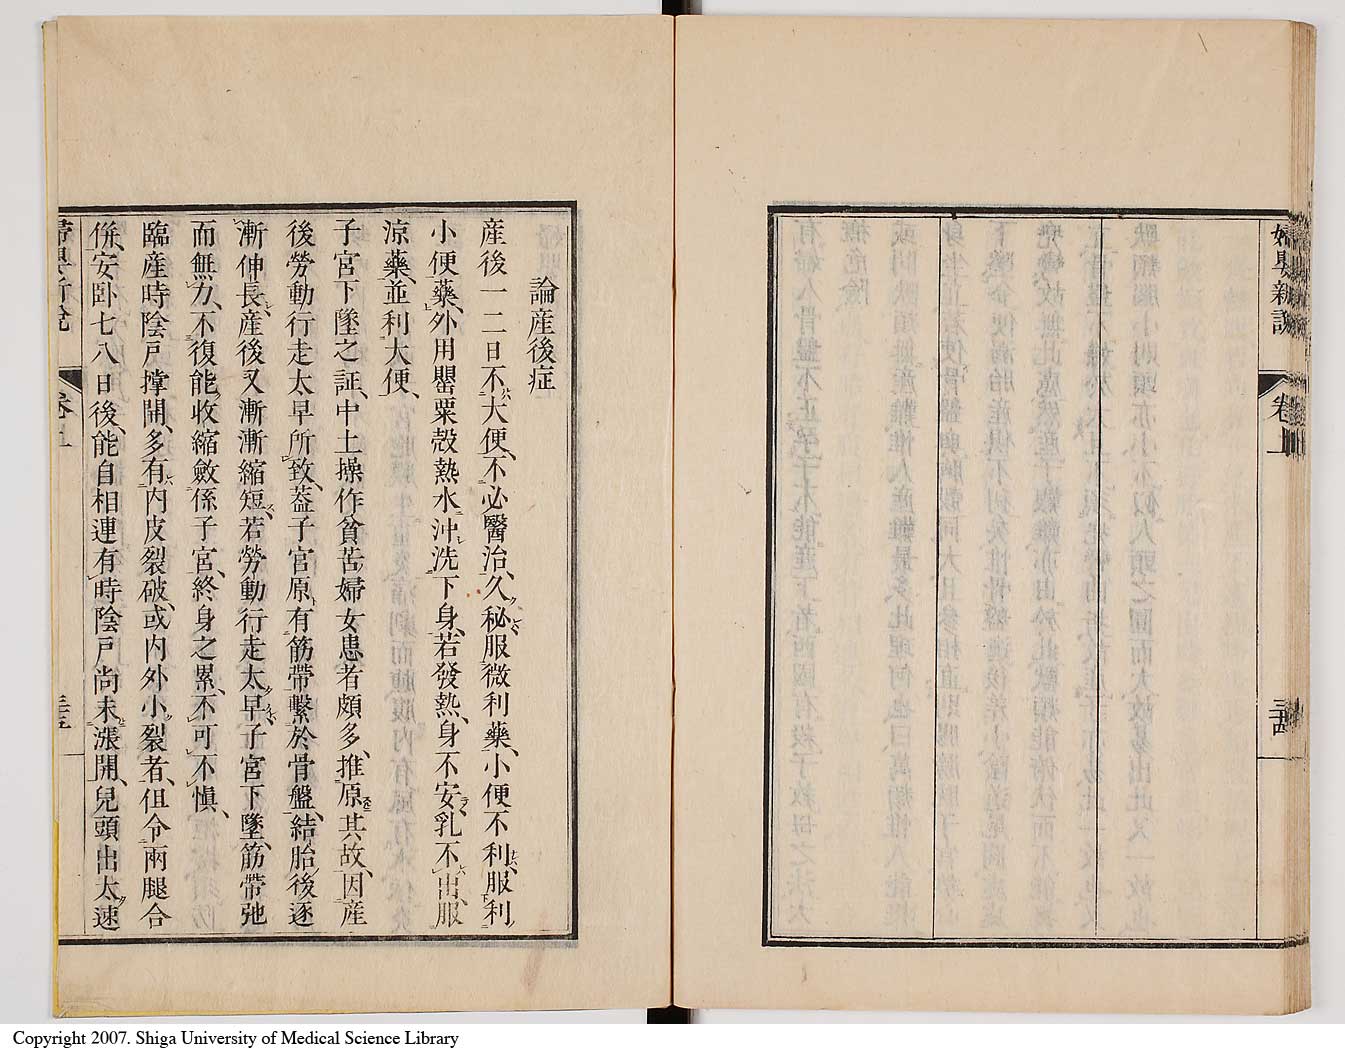 婦嬰新說
卷上
三十四
論産後症
産後一二日不大便、不必醫治、久秘服微利藥、小便不利、服利
小便藥、外用罌粟殼熱水沖洗下身、若發熱、身不安、乳不出、服
涼藥、並利大便、
子宮下墜之証、中土操作貧苦婦女患者頗多、推原其故、因産
後勞動行走太早所致、葢子宮原有筋帶繫於骨盤、結胎後逐
漸伸長、産後又漸漸縮短、若勞動行走太早、子宮下墜、筋帶弛
而無力、不復能收縮斂係子宮、終身之累、不可不慎、
臨産時陰戸撑開、多有內皮裂破、或內外小裂者、但令兩腿合
倂、安卧七八日後、能自相連、有時陰戸尚未漲開、兒頭出太速
婦嬰新說
卷上
三十五
Copyright 2007. Shiga University of Medical Science Library